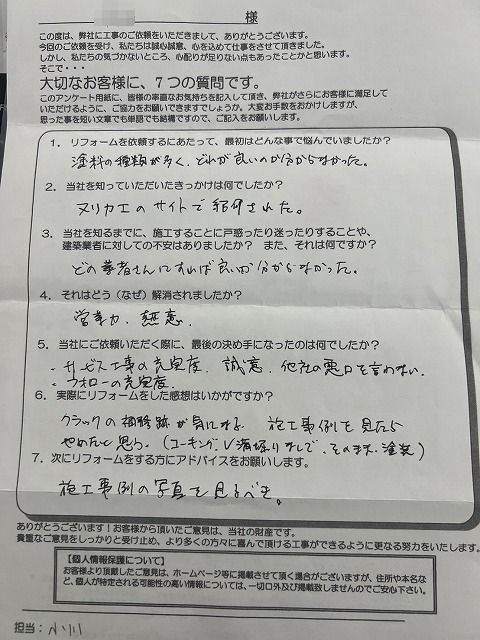 様
この度は、弊社に工事のご依頼をいただきまして、ありがとうございます。
今回のご依頼を受け、私たちは誠心誠意、心を込めて仕事をさせて頂きました。
しかし、私たちの気づかないところ、心配りが足りない点もあったことかと思います。
そこで・・・
大切なお客様に、7つの質問です。
このアンケート用紙に、皆様の率直なお気持ちを記入して頂き、弊社がさらにお客様に満足して
いただけるように、ご協力をお願いできますでしょうか。大変お手数をおかけしますが、
思った事を短い文章でも単語でも結構ですので、ご記入をお願いします。
1. リフォームを依頼するにあたって、最初はどんな事で悩んでいましたか?
塗料の種類が多く、どれが良いのか分からなかった。
2. 当社を知っていただいたきっかけは何でしたか?
ヌリカエのサイトで紹介された。
3. 当社を知るまでに、施工することに戸惑ったり迷ったりすることや、
建築業者に対しての不安はありましたか? また、それは何ですか?
どの業者さんにすれば良いか分からなかった。
4. それはどう(なぜ)解消されましたか?
営業力、熱意、
5. 当社にご依頼いただく際に、最後の決め手になったのは何でしたか?
・サービス工事の充実度、誠意、他社の悪口を言わない、
・フォローの充実度、
6. 実際にリフォームをした感想はいかがですか?
クラックの補修跡が気になる 施工事例を見たら
やめたと思う、(コーキング、V溝堀りなしで、そのまま塗装)
7. 次にリフォームをする方にアドバイスをお願いします。
施工事例の写真を見るべき。
ありがとうございます!お客様から頂いたご意見は、当社の財産です。
貴重なご意見をしっかりと受け止め、より多くの方々に喜んで頂ける工事ができるように更なる努力をいたします。
【個人情報保護について】
お客様より頂戴したご意見は、ホームページ等に掲載させて頂く場合がございますが、住所や本名な
ど、個人が特定される可能性の高い情報については、一切口外及び掲載致しませんのでご安心下さい。
担当:小川